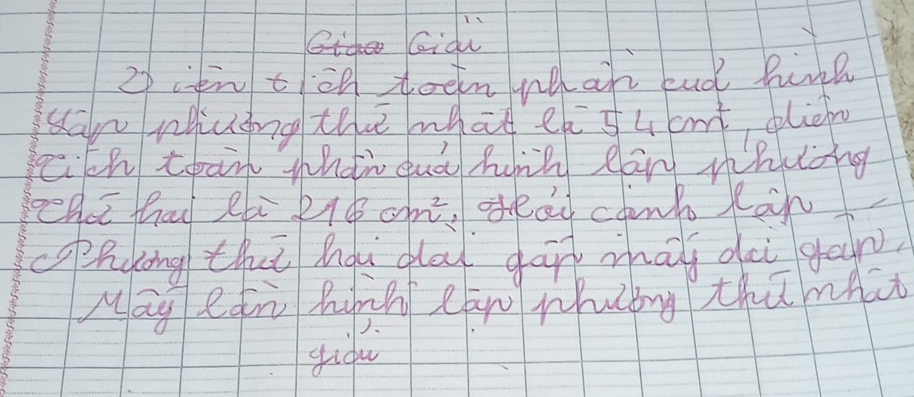 Giải
Diện tích toàn phần cuả hình
lập phương thứ nhất là 54 cm², diện
tích toàn phần cuả hình lập phương
thứ hai là 216 cm², Hỏi cạnh lập
Phương thứ hai dài gấp mấy dài gấp
Mấy lần hình lập phương thứ nhất
giải